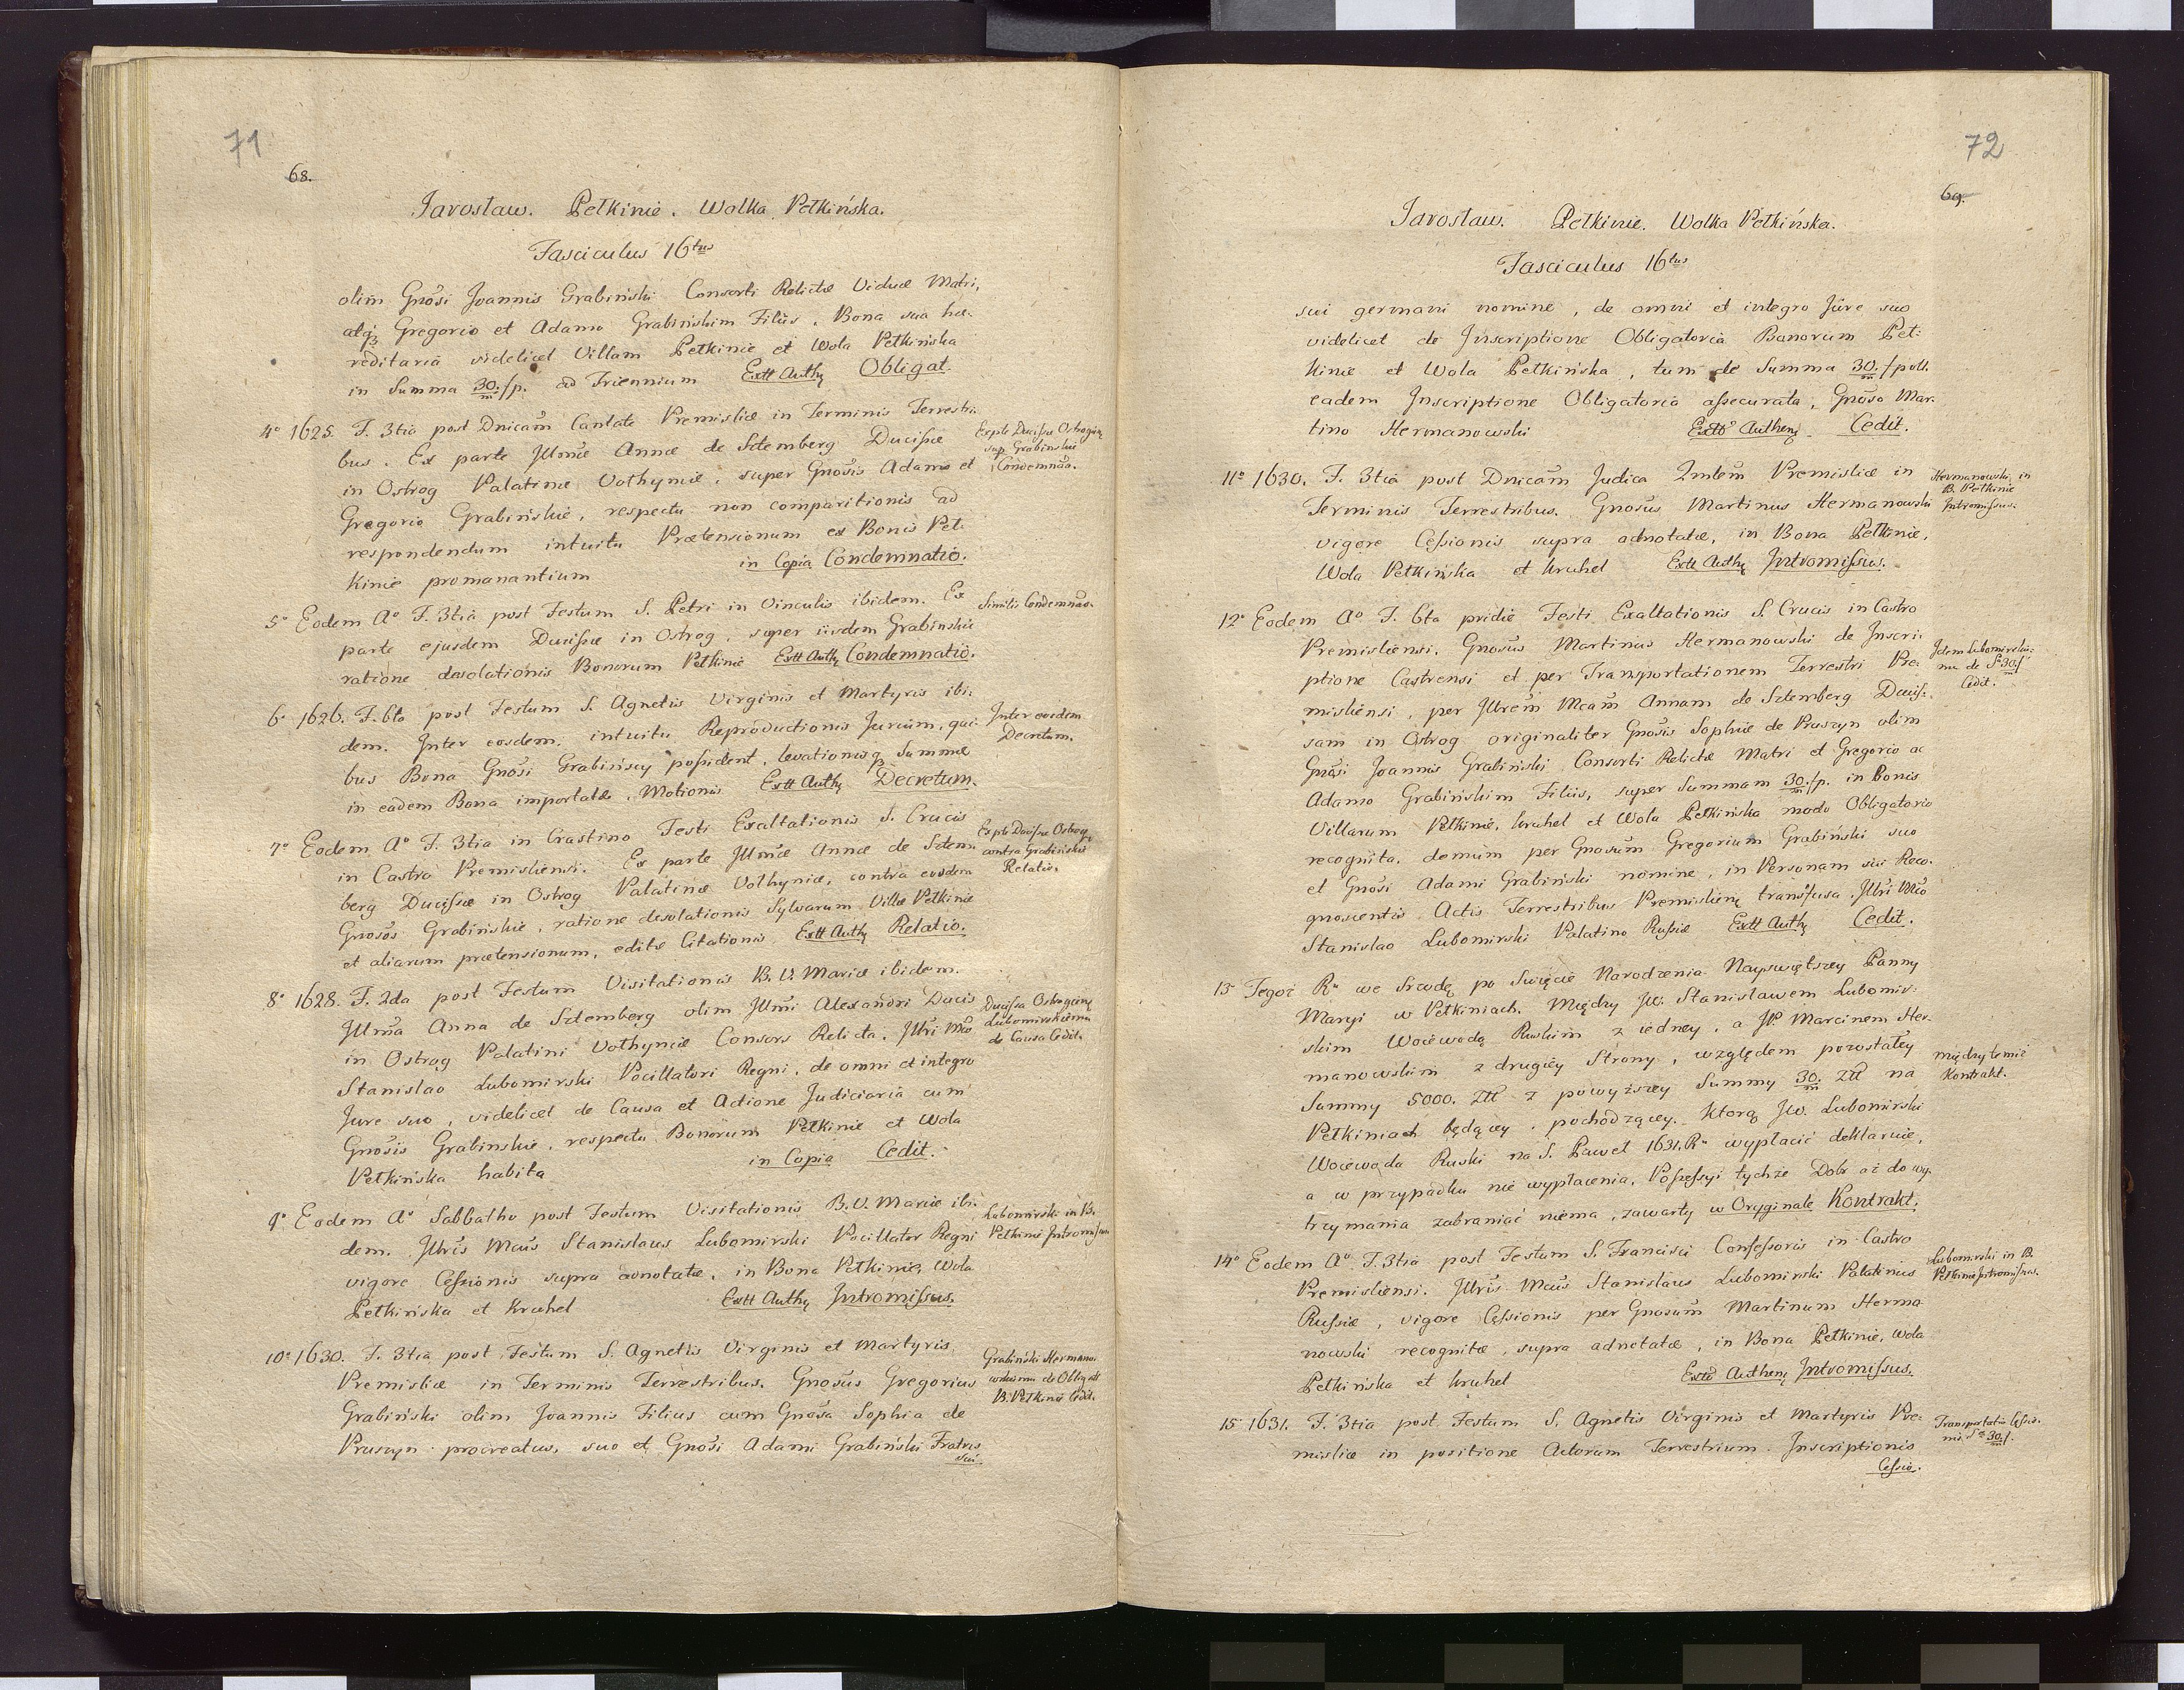 71
68.
Jarosław. Pełkinie. Wolka Pełkińska.
Fasciculus 16tus
olim Gnosi Joannis Grabiński Consorti Relictæ Viduæ Matri,
atq3 Gregorio et Adamo Grabińskim Filiis. Bona sua hæ-
reditaria videlicet Villam Pełkinie et Wola Pełkińska
in Summa 30/m f p. ad Triennium Extt Auth Obligat.
4º 1625. F. 3tia post Dnicam Cantate Premisliæ in Terminis Terrestri-
bus. Ex parte Illmæ Annæ de Sztemberg Ducissæ
in Ostrog Palatinæ Vołhyniæ, super Gnosis Adamo et
Gregorio Grabińskie, respectu non comparitionis ad
respondendum intuitu Prætensionum ex Bonis Peł-
kinie promanantium in Copia Condemnatio.
Ex pte Ducissæ Ostrogien
sup. Grabinskie
Condemnão.
5º Eodem Aº F. 3tia post Festum S. Petri in Vinculis ibidem. Ex
parte ejusdem Ducissæ in Ostrog, super iisdem Grabinskie
ratione desolationis Bonorum Pełkinie Extt Auth Condemnatio.
Similis Condemnão.
6º 1626. F. 6ta post Festum S. Agnetis Virginis et Martyris ibi-
dem. Inter eosdem, intuitu Reproductionis Jurium, qui-
bus Bona Gnosi Grabińscy possident, levationisq3 Summæ
in eadem Bona importatæ, Motionis Extt Auth Decretum.
Inter eosdem
Decretum.
7º Eodem Aº F. 3tia in Crastino Festi Exaltationis S. Crucis
in Castro Premisliensi. Ex parte Illmæ Annæ de Sztem-
berg Ducissæ in Ostrog Palatinæ Vołhyniæ, contra eosdem
Gnosos Grabińskie, ratione desolationis Sylvarum Villæ Pełkinie
et aliarum prætensionum, editæ Citationis Extt Auth Relatio.
Ex pte Ducissæ Ostrog.
contra Grabińskie
Relatio.
8º 1628. F. 2da post Festum Visitationis B. V. Mariæ ibidem.
Illma Anna de Sztemberg olim Illmi Alexandri Ducis
in Ostrog Palatini Vołhyniæ Consors Relicta. Illri Mco
Stanislao Lubomirski Pocillatori Regni, de omni et integro
Jure suo, videlicet de Causa et Actione Judiciaria cum
Gnosis Grabinskie, respectu Bonorum Pełkinie et Wola
Pełkińska habita in Copia Cedit.
Ducissa Ostrogien
Lubomirskiemu
de Causa Cedit.
9º Eodem Aº Sabbatho post Festum Visitationis B. V. Mariæ ibi-
dem. Illris Mcus Stanislaus Lubomirski Pocillator Regni
vigore Cessionis supra adnotatæ, in Bona Pełkinie, Wola
Pełkińska et Kruhel Extt Auth Intromissus.
Lubomirski in B.
Pełkinie Intromissus
10º 1630. F. 3tia post Festum S. Agnetis Virginis et Martyris
Premisliæ in Terminis Terrestribus. Gnosus Gregorius
Grabiński olim Joannis Filius cum Gnosa Sophia de
Pruszyn procreatus, suo et Gnosi Adami Grabiński Fratris
sui
Grabiński Hermano-
wskiemu de Obligatt
B. Pełkinie Cedit.
72
69.
Jarosław. Pełkinie. Wolka Pełkińska.
Fasciculus 16tus
sui germani nomine, de omni et integro Jure suo
videlicet de Inscriptione Obligatoria Bonorum Peł-
kinie et Wola Pełkińska, tum de Summa 30/m f poll.
eadem Inscriptione Obligatoria assecurata, Gnoso Mar-
tino Hermanowski Extto Authen Cedit.
11º 1630. F. 3tia post Dnicam Judica Qmlem Premisliæ in
Terminis Terrestribus. Gnosus Martinus Hermanowski
vigore Cessionis supra adnotatæ, in Bona Pełkinie,
Wola Pełkińska et Kruhel Extt Auth Intromissus.
Hermanowski in
B. Pełkinie
Intromissus.
12º Eodem Aº F. 6ta pridie Festi Exaltationis S. Crucis in Castro
Premisliensi. Gnosus Martinus Hermanowski de Inscri-
ptione Castrensi et per Transportationem Terrestri Pre-
misliensi, per Illrem Mcam Annam de Sztemberg Ducis-
sam in Ostrog originaliter Gnosis Sophiæ de Pruszyn olim
Gnosi Joannis Grabiński Consorti Relictæ Matri et Gregorio ac
Adamo Grabińskim Filiis, super Summam 30/m f p. in Bonis
Villarum Pełkinie, Kruhel et Wola Pełkińska modo Obligatorio
recognita, demum per Gnosum Gregorium Grabiński suo
et Gnosi Adami Grabiński nomine, in Personam sui Reco-
gnoscentis Actis Terrestribus Premislien transfusa, Illri Mco
Stanislao Lubomirski Palatino Russiæ Extt Auth Cedit.
Idem Lubomirskie-
mu de Sa 30/m f
Cedit.
13º Tegoż Ru we Srzodę po Swięcie Narodzenia Nayswiętszey Panny
Maryi w Pełkiniach. Między JW. Stanisławem Lubomir-
skim Woiewodą Ruskim z iedney, a JP. Marcinem Her-
manowskim z drugiéy Strony, względem pozostałey
Summy 5000. Złł z powyższey Summy 30/m Złł na
Pełkiniach będącey, pochodzącey. Ktorą JW. Lubomirski
Woiewoda Ruski na S. Paweł 1631. Ru wypłacić deklaruie,
a w przypadku nie wypłacenia, Possessyi tychże Dobr aż do wy-
trzymania zabraniać niema, zawarty w Oryginale Kontrakt.
między temiż
Kontrakt.
14º Eodem Aº F. 3tia post Festum S. Francisci Confessoris in Castro
Premisliensi. Illris Mcus Stanislaus Lubomirski Palatinus
Russiæ, vigore Cessionis per Gnosum Martinum Herma-
nowski recognitæ, supra adnotatæ, in Bona Pełkinie, Wola
Pełkińska et Kruhel Extto Authen Intromissus.
Lubomirski in B.
Pełkinie Intromissus.
15º 1631. F. 3tia post Festum S. Agnetis Virginis et Martyris Pre-
misliæ in positione Actorum Terrestrium. Inscriptionis
Cessio-
Transportatio Cessio-
nis Sæ 30/m f.